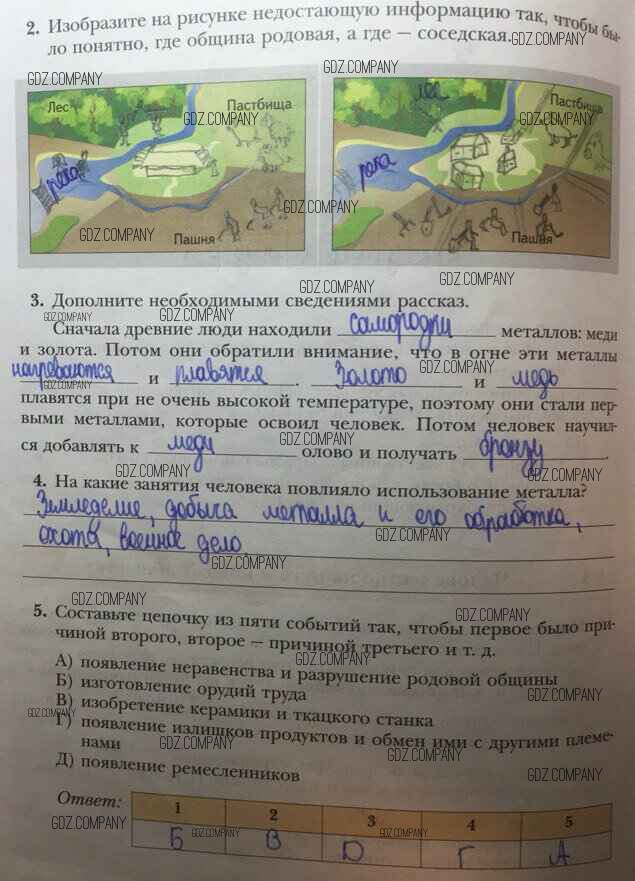 2. Изобразите на рисунке недостающую информацию так, чтобы бы-
ло понятно, где община родовая, а где — соседская.
GDZ.COMPANY
GDZ.COMPANY
GDZ.COMPANY
GDZ.COMPANY
Лес
Пастбища
GDZ.COMPANY
река
GDZ.COMPANY
GDZ.COMPANY
Пашня
лес
Пастбища
GDZ.COMPANY
река
GDZ.COMPANY
Пашня
GDZ.COMPANY
GDZ.COMPANY
3. Дополните необходимыми сведениями рассказ.
GDZ.COMPANY
GDZ.COMPANY
Сначала древние люди находили самородки металлов: меди
и золота. Потом они обратили внимание, что в огне эти металлы
GDZ.COMPANY
нагреваются и плавятся. Золото и медь
плавятся при не очень высокой температуре, поэтому они стали пер-
выми металлами, которые освоил человек. Потом человек научил-
GDZ.COMPANY
ся добавлять к меди олово и получать бронзу.
GDZ.COMPANY
GDZ.COMPANY
4. На какие занятия человека повлияло использование металла?
Земледелие, добыча металла и его обработка,
GDZ.COMPANY
охота, военное дело.
GDZ.COMPANY
GDZ.COMPANY
GDZ.COMPANY
5. Составьте цепочку из пяти событий так, чтобы первое было при-
чиной второго, второе — причиной третьего и т. д.
GDZ.COMPANY
А) появление неравенства и разрушение родовой общины
Б) изготовление орудий труда
GDZ.COMPANY
В) изобретение керамики и ткацкого станка
GDZ.COMPANY
Г) появление излишков продуктов и обмен ими с другими племе-
нами
GDZ.COMPANY
GDZ.COMPANY
Д) появление ремесленников
GDZ.COMPANY
Ответ:
1 2 3 4 5
GDZ.COMPANY
GDZ.COMPANY
GDZ.COMPANY
GDZ.COMPANY
Б В D Г А